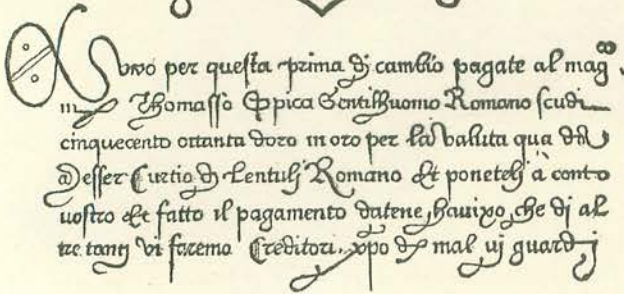 per questa prima di cambio pagate al mag^co
m Thomasso Gentilhuomo Romano scudi
cinquecento ottanta doro in oro per la valuta qua dal
Messer Curtio di Lentulj Romano Et ponetelj à conto
uostro Et fatto il pagamento datene hauixo che di al
tre tantj vi faremo Creditori. xpo di mal uj guardj